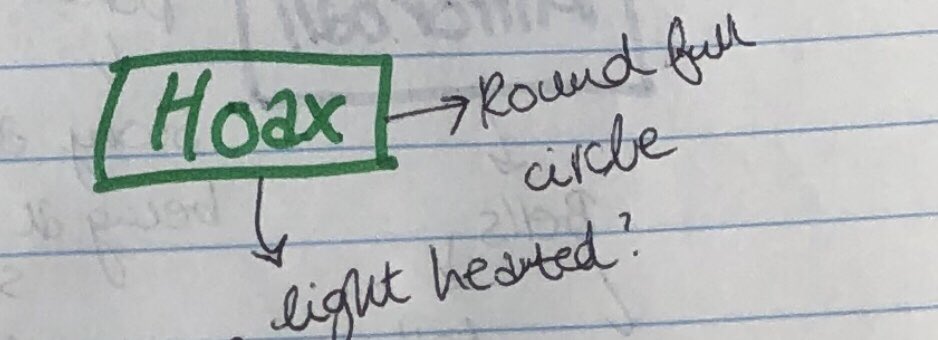 Hoax
Round full
circle
light hearted?